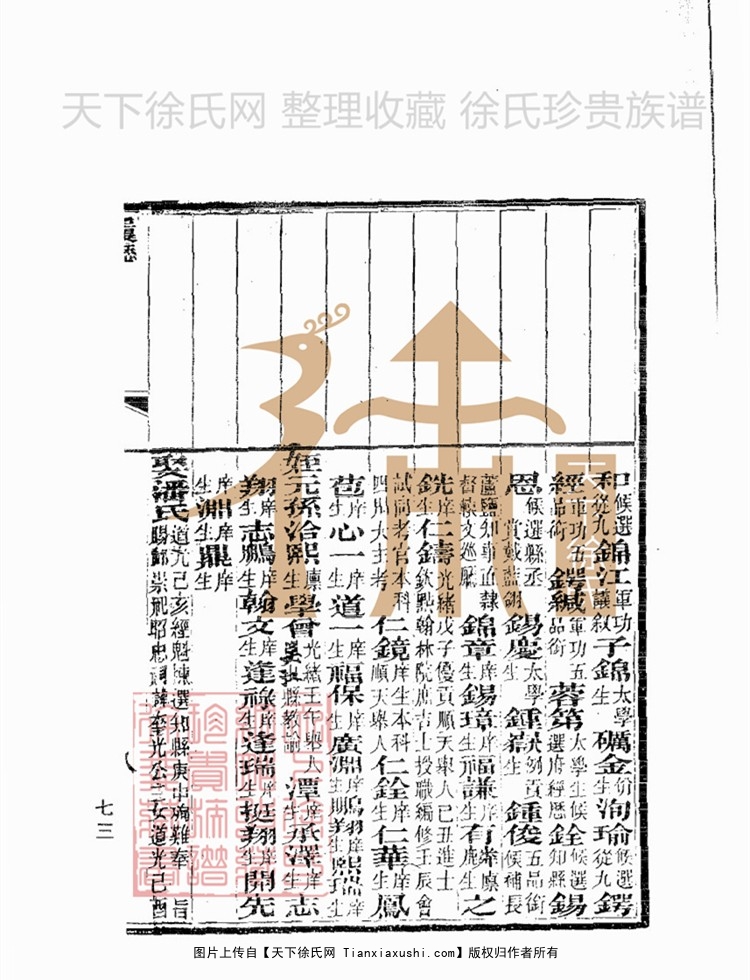 天下徐氏网 整理收藏 徐氏珍贵族谱
和候選從九錦江軍功議叙子錦太學生礪金衍生洵瑜候選從九鍔
經軍功五品銜鍔緘軍功五品銜蓉第太學生候選府經歷銓候選知縣錫
恩候選縣丞賞戴藍翎錫慶太學生鍾嶽附例貢生鍾俊五品銜候補長
蘆鹽知事直隸督練文巡廳錦章庠生錫璋庠生福謙庠生有榮廪庠生之
銑庠生仁鑄光緒戊子優貢順天舉人己丑進士欽點翰林院庶吉士授職編修壬辰會
試同考官本科四川大主考仁鏡庠生本科順天舉人仁銓庠生仁華庠生鳳
苞庠生心一庠生道一庠生福保庠生廣淵庠生鳴翔庠生熙瑞庠生
姪元孫治熙廪生學曾光緒壬午舉人縣教諭潭庠生承澤庠生志
翔庠生志鵬庠生翰文庠生逢祿庠生逢瑞庠生挺翔庠生開先
庠生淵庠生鼎庠生
娶潘氏道光己亥經魁揀選知縣庚申殉難奉旨賜卹崇祀昭忠祠諱奎光公三女道光己酉
七三
图片上传自【天下徐氏网 Tianxiaxushi.com】版权归作者所有